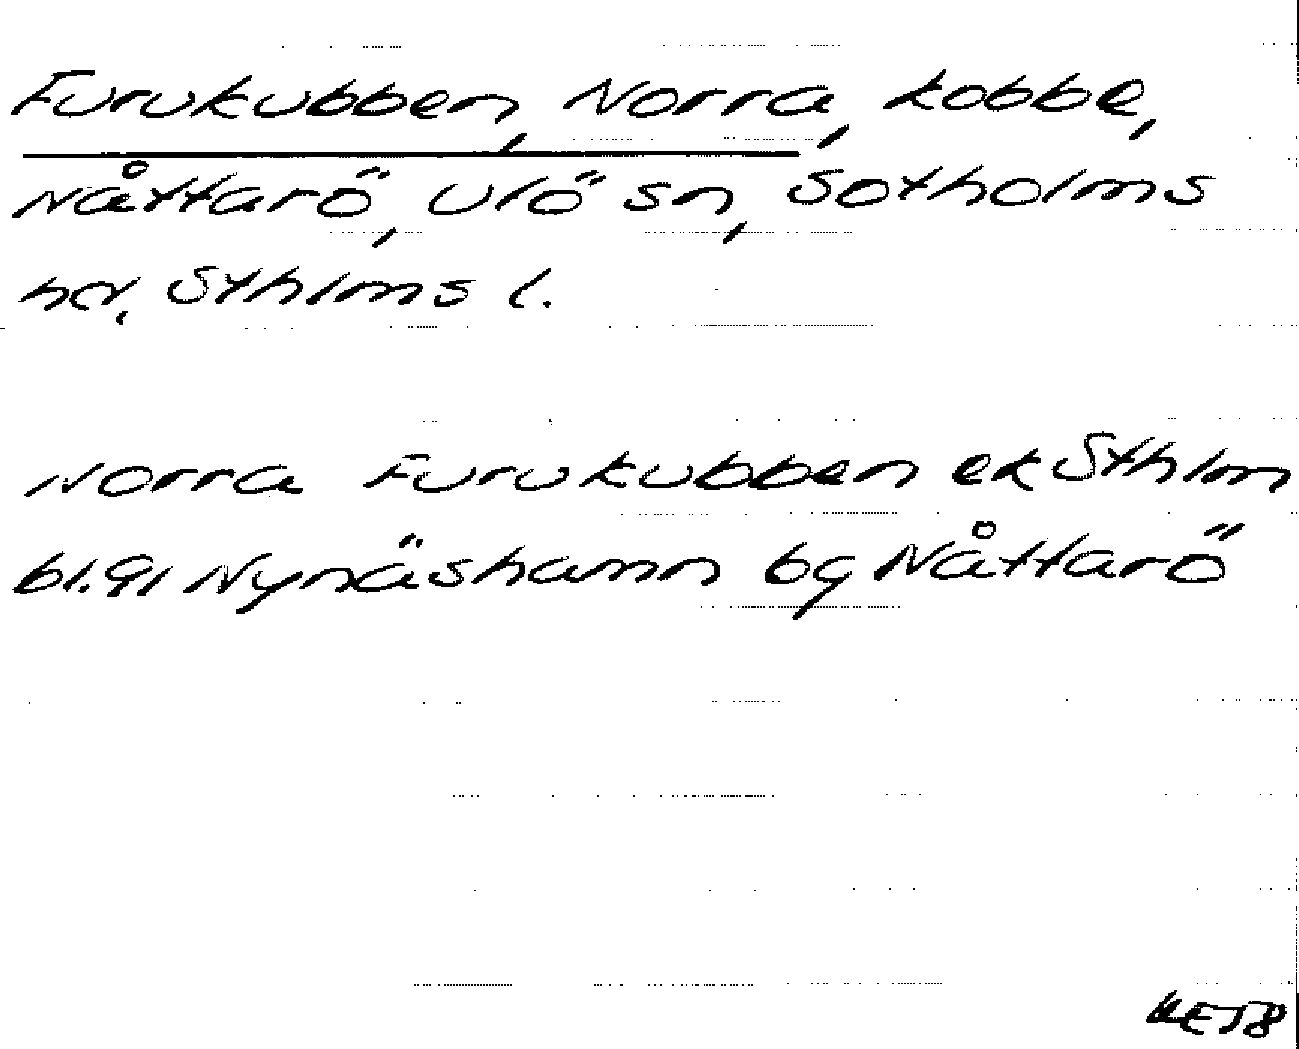 Furukubben, Norra, kobbe,
Nåttarö, Utö sn, Sotholms
hd, Sthlms l.
Norra Furukubben ek Sthlm
bl. 91 Nynäshamn bg Nåttarö